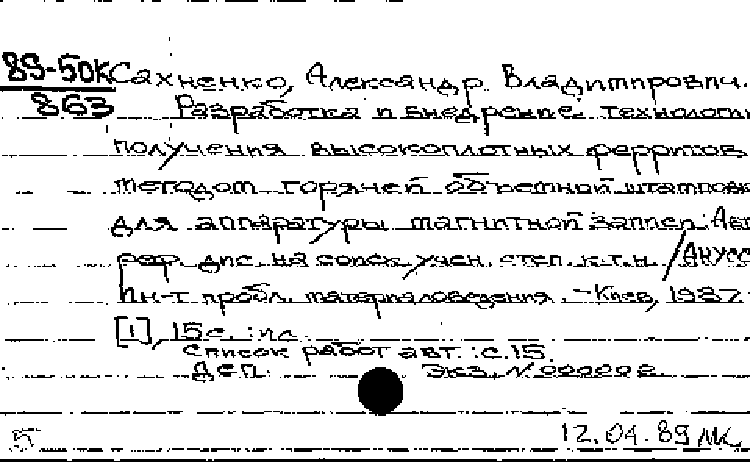 89-50К Сахненко, Александр Владимирович.
863 Разработка и внедрение технологи
получения высокоплотных ферритов
методом горячей объемной штамповк
для аппаратуры магнитной записи: Авт
реф. дис. на соиск. учен. степ. к.т.н. / АН УССР
Ин-т пробл. материаловедения. - Киев, 1987. -
[1], 15с. : ил.
Список работ авт.: с.15.
Деп. Экз. N 000002
5 12.04.89 МК